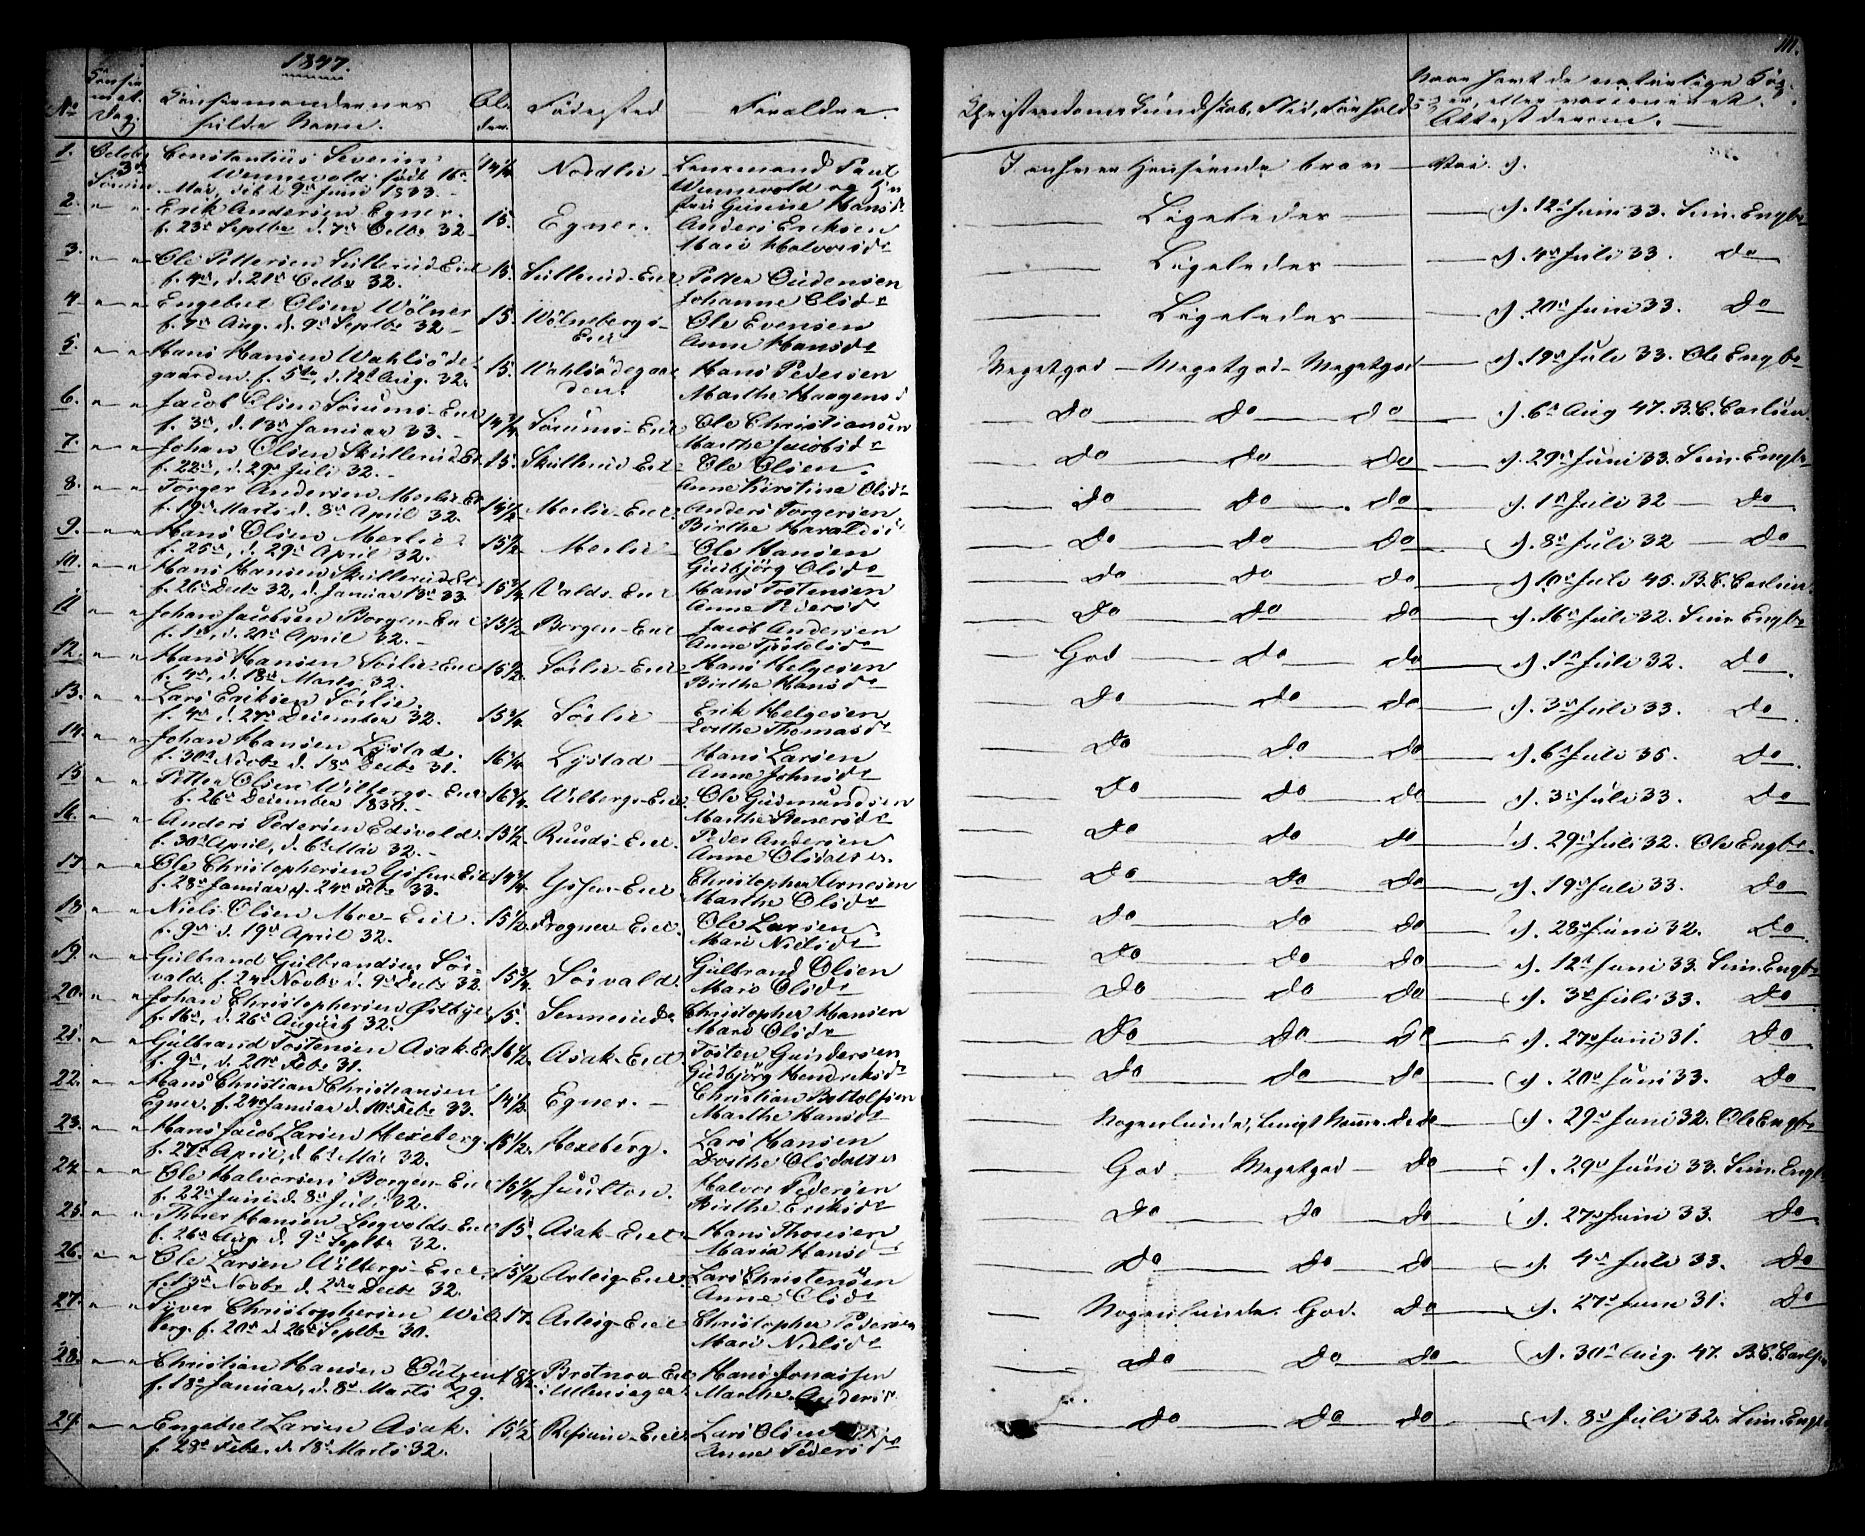 111.
1847.
No
Confir
mat.
Dag.
Confirmandernes
fulde Navn.
Al-
der.
Fødested
Forældre.
Christendoms Kundskab, Flid, Forhold
Naar havt de naturlige Kop-
per, eller vaccineret.
Attest derom.
1. Octobr 3die Constantius Severin
Wennevold født 16de
Mai, døbt 9de Juni 1833.
14 1/4 Nordlie Lensmand Paul
Wennevold og
Gunine Hansdr
I enhver Henseende brav
2. " " Erik Andersen Egner.
f. 23de Septbr d. 7de Octbr 32.
15. Egner. Anders Eriksen
Mari Halvorsdr
Ligeledes v. 12te Juni 33. Sim. Engbr
3. " " Ole Pettersen Eiet
f. 4de, d. 21de Octbr 32.
15. Petter Gudensen
Johanne Olsdr
Ligeledes v. 4de Juli 33. Do
4. " " Engebret Olsen Wölner
f. 7de Aug. d. 9de Septbr 32
15. Wölnebergs-
Eiet Ole Evensen
Anne Hansdr
Ligeledes v. 20de Juni 33. Do
5. " " Hans Hansen Wahlsöde-
gaarden. f. 5te, d. 12te Aug. 32.
15. Wahlsödegaar-
den. Hans Pedersen
Marthe Haagensd
Megetgod Megetgod Megetgod v. 19de Juli 33. Ole Engbr
6. " " Jacob Olsen Sörums-Eiet
f. 3de, d. 13de Januar 33.
14 3/4 Sörums-Eiet Ole Christiansen
Marthe Jacobsdr
Do Do Do v. 6te Aug 47. B. C. Carlsen
7. " " Johan Olsen Skullerud Et.
f. 22de, d. 29de Juli 32.
15. Skullerud Eiet Ole Olsen.
Anne Kirstine Olsdr
Do Do Do v. 29de Juni 33. Sim. Engbr
8. " " Torger Andersen Merlie Et
f. 19de Marts d. 8de April 32.
15 1/2 Merlie-Eiet Anders Torgersen
Birthe Haraldsd
Do Do Do v. 1ste Juli 32 Do
9. " " Hans Olsen Merlie
f. 25de, d. 29de April 32.
15 1/2 Merlie Ole Hansen
Gudbjörg Olsdr
Do Do Do v. 8de Juli 32 Do
10. " " Hans Hansen Skullerud Et
f. 26de Decbr 32, d. Januar 13de 33.
15 3/4 Valds-Eiet Hans Tostensen
Anne Pedersdr
Do Do Do v. 10de Juli 45. B. C. Carlsen
11 " " Johan Jacobsen Borgen-Eiet
f. 1ste, d. 20de April 32.
15 1/2 Borgen-Eiet Jacob Andersen
Anne Tjöstelsdr
Do Do Do v. 16de Juli 32. Sim. Engbr
12. " " Hans Hansen Sörlie Eiet
f. 4de, d. 18de Marts 32.
15 1/2 Sörlie Eiet Hans Helgesen
Birthe Hansdr
God Do Do v. 1ste Juli 32. Do
13. " " Lars Eriksen Sörlie.
f. 4de d. 27de December 32.
15 3/4 Sörlie Erik Helgesen
Dorthe Thomasdr
Do Do Do v. 3de Juli 33. Do
14. " " Johan Hansen Lystad.
f. 30de Novbr d. 18de Decbr 31.
16 3/4 Lystad Hans Larsen
Anne Johnsdr
Do Do Do v. 6te Juli 35. Do
15 " " Petter Olsen Wilbergs-Eiet
f. 26de December 1830.
16 3/4 Wilbergs-Eiet Ole Gudmundsen
Marthe Stenersdr
Do Do Do v. 3de Juli 33. Do
16. " " Anders Pedersen Edsvold.
f. 30te April, d. 6te Mai 32.
15 1/2 Ruuds-Eiet. Peder Andersen
Anne Olsdatter.
Do Do Do v. 29de Juli 32. Ole Engbr
17 " " Ole Christophersen Eiet
f. 28de Januar d. 24de Febr 33.
14 3/4 Christopher Arnesen
Marthe Olsdr
Do Do Do v. 19de Juli 33. Do
18 " " Niels Olsen Moe-Eiet.
f. 9de d. 19de April 32.
15 1/2 Frogner-Eiet. Ole Larsen
Mari Nielsdr
Do Do Do v. 28de Juni 32. Do
19. " " Gulbrand Gulbrandsen Sör-
vald. f. 24de Novbr d. 9de Decbr 32.
15 3/4 Sörvald. Gulbrand Olsen
Mari Olsdr
Do Do Do v. 12te Juni 33. Sim. Engbr
20. " " Johan Christophersen Östbye
f. 16de, d. 26de August 32.
15. Sennerud Christopher Hansen
Mari Olsdr
Do Do Do v. 3de Juli 33. Do
21. " " Gulbrand Tostensen Asak-Et
f. 9de, d. 20de Febr 31.
16 1/2 Asak-Eiet Tosten Gundersen
Gudbjörg Hendriksdr
Do Do Do v. 27de Juni 31. Do
22. " " Hans Christian Christiansen
Egner. f. 24de Januar d. 10de Febr 33.
14 1/2 Egner. Christian Bottolfsen
Marthe Hansdr
Do Do Do v. 20de Juni 33. Do
23. " " Hans Jacob Larsen Hexeberg.
f. 27de April, d. 6te Mai 32.
15 1/2. Hexeberg. Lars Hansen
Dorthe Olsdatter
Nogenlunde, Do v. 29de Juni 32. Ole Engbr
24. " " Ole Halvorsen Borgen-Eiet
f. 22de Juni d. 8de Juli 32.
15 1/4 Juulton. Halvor Pedersen
Birthe Eriksdr
God Megetgod Do v. 29de Juni 33. Sim. Engb.
25. " " Thor Hansen Eiet
f. 26de Aug. d. 9de Septbr 32.
15. Asak-Eiet Hans Thorsen
Maria Hansdr
Do Do Do v. 27de Juni 33. Do
26. " " Ole Larsen Wilbergs-Eiet.
f. 13de Novbr d. 2den Decbr 32.
15 1/2 Arteig-Eiet. Lars Christensen
Anne Olsdr
Do Do Do v. 4de Juli 33. Do
27. " " Syver Christophersen Wil-
berg. f. 20de d. 26de Septbr 30.
17. Arteig-Eiet Christopher Pedersen
Mari Nielsdr
Nogenlunde. God. Do v. 27de Juni 31. Do
28. " " Christian Hansen
f. 18de Januar, d. 8de Marts 29.
18 1/2 Brotnov-Eiet
i Ullensager Hans Jonassen
Marthe Andersd
Do Do Do v. 30te Aug. 47. B. C. Carlsen
29. " " Engebret Larsen Asak.
f. 23de Febr. d. 18de Marts 32.
15 1/2 Lars Olsen
Anne Pedersdr
Do Do Do v. 8de Juli 32. Sim. Engbr